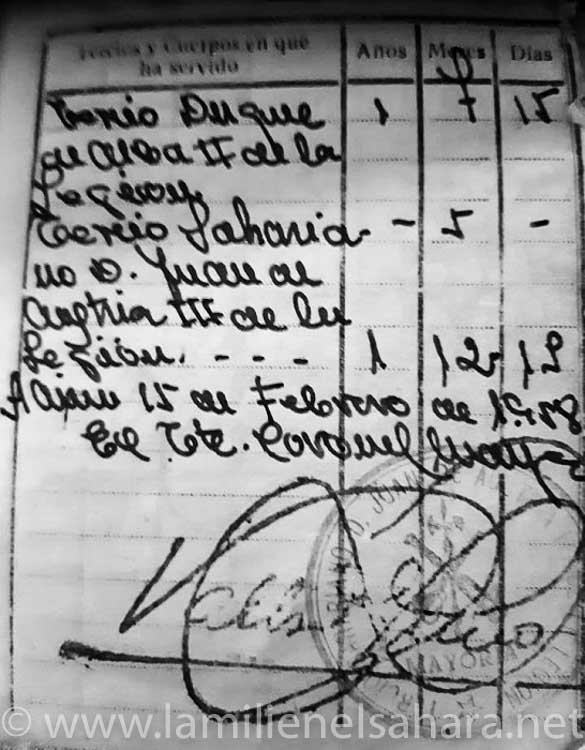 Tercios y Cuerpos en que ha servido Años Meses Días
Tercio Duque 1 7 15
de Alba II de la
Legion.
Tercio Saharia- - 5 -
no D. Juan de
Austria III de la
Legión. - - - 1 12 15
Aaiun 15 de Febrero de 1958
El Tte. Coronel Mayor
MAYOR
© www.lamilienelsahara.net